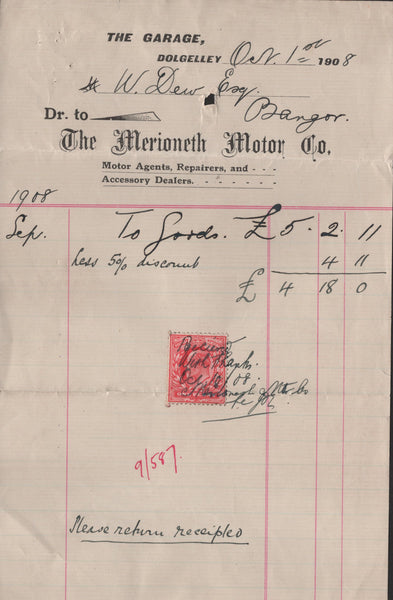 THE GARAGE,
DOLGELLEY Oct. 1st 1908
W. Dew Esq.
Dr. to Bangor.
The Merioneth Motor Co.
Motor Agents, Repairers, and - - -
Accessory Dealers. - - - - - -
1908
Sep. To Goods. £ 5 . 2 . 11
Less 5% discount 4 11
£ 4 18 0
Received
With thanks
Merioneth Motor Co
9/587.
Please return receipted